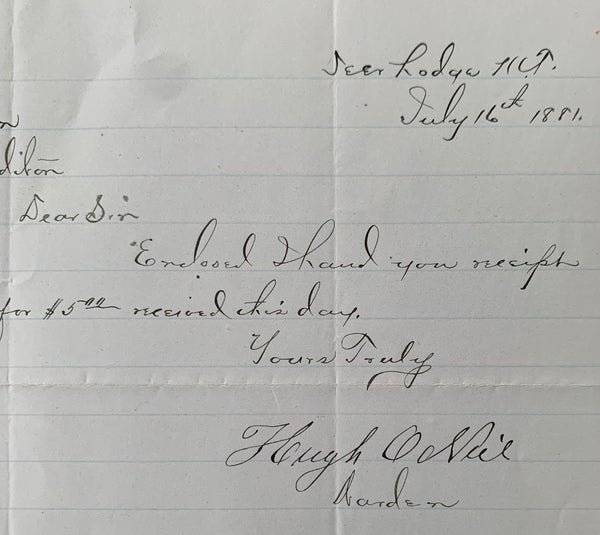 Deer Lodge M.T.
July 16th 1881.
n
ditōn
Dear Sir
Enclosed I hand you receipt
for $5.00 received this day.
Yours Truly
Hugh O'Neil
Warden